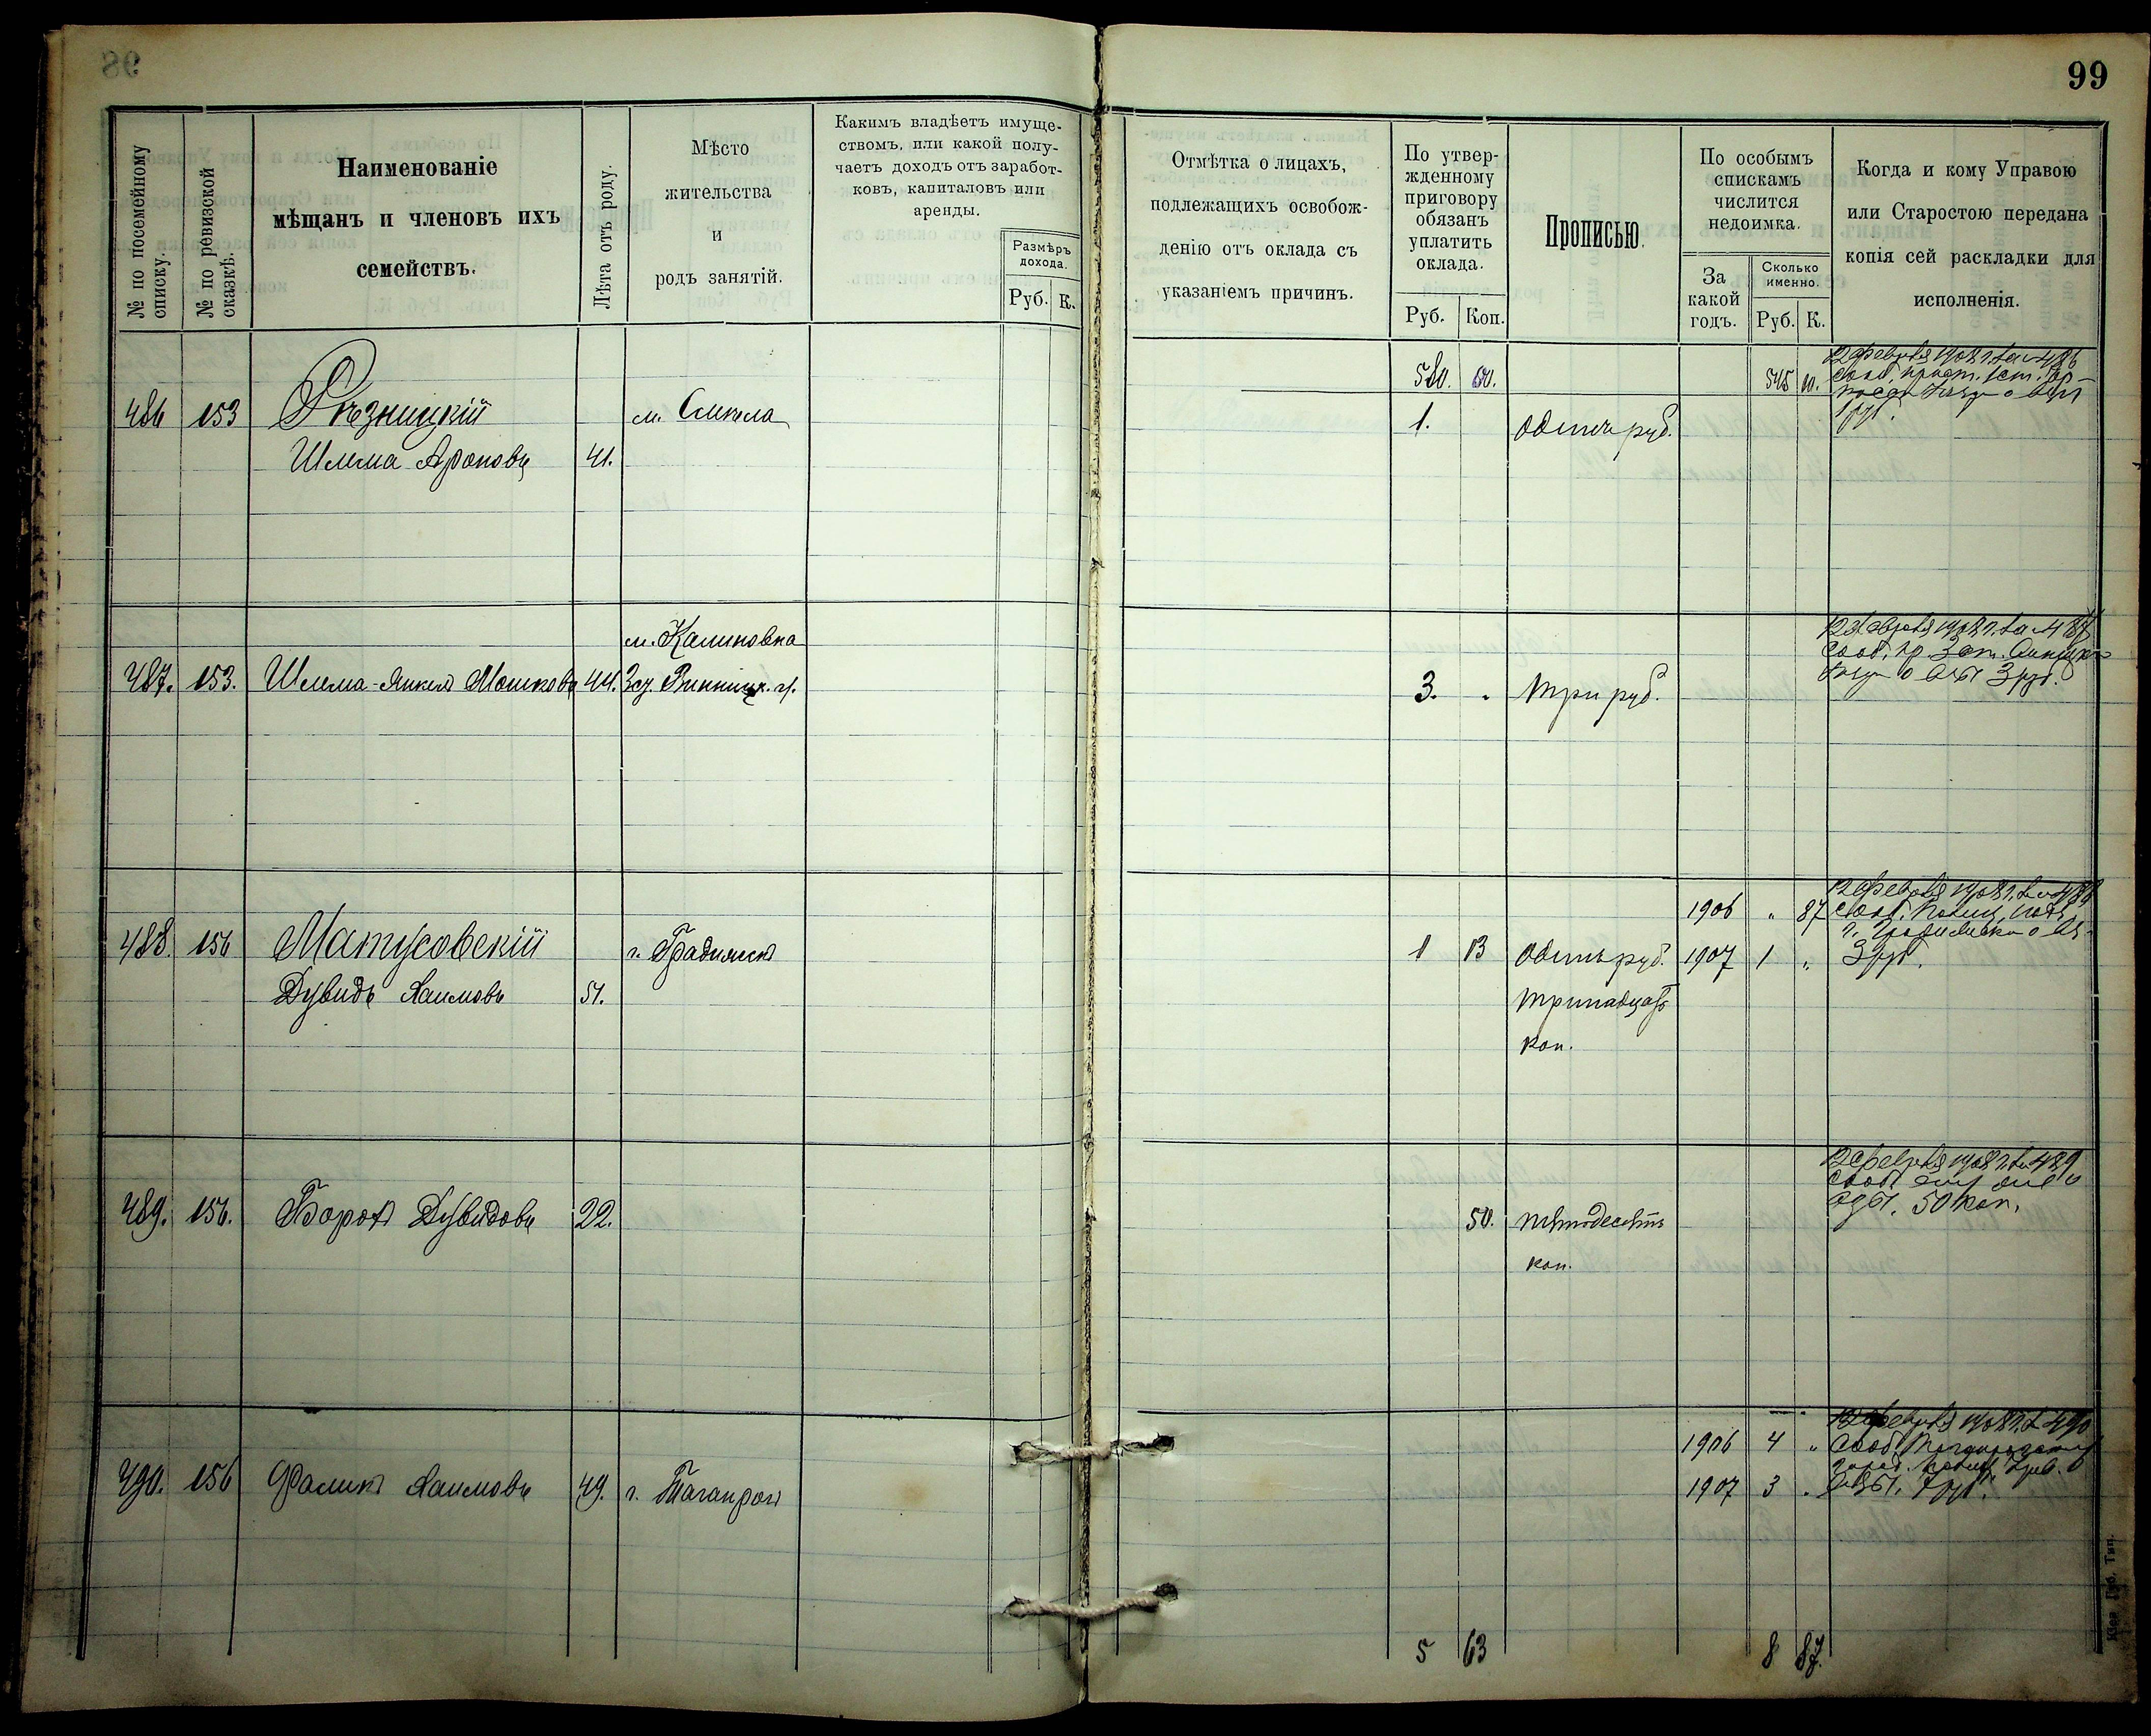 99
№ по посемейному списку.
№ по ревизской сказкѣ.
Наименованіе
мѣщанъ и членовъ ихъ
семействъ.
Лѣта отъ роду.
Мѣсто
жительства
и
родъ занятій.
Какимъ владѣетъ имуще-
ствомъ, или какой полу-
чаетъ доходъ отъ заработ-
ковъ, капиталовъ или
аренды.
Размѣръ
дохода.
Руб. К.
Отмѣтка о лицахъ,
подлежащихъ освобож-
денію отъ оклада съ
указаніемъ причинъ.
По утвер-
жденному
приговору
обязанъ
уплатить
оклада.
Руб. Коп.
Прописью.
По особымъ
спискамъ
числится
недоимка.
За
какой
годъ.
Сколько
именно.
Руб. К.
Когда и кому Управою
или Старостою передана
копія сей раскладки для
исполненія.
580. 60. 545 10. 12 февраля 1908 г. за № 486
486 153 Рѣзницкій м. Смѣла 1. Один руб. 1 руб.
Шлема Ароновъ 41.
м. Калиновка 12 февраля 1908 г. за № 487
487. 153. Шлема-Янкель Мошковъ 44. Винниц. у. 3. " три руб. 3 руб.
12 февраля 1908 г. за № 488
1906 " 87
488. 156 Матусовскій г. Градижск 1 13 Один руб. 1907 1 " 3 руб.
Дувидъ Хаимовъ 51. тринадцать
коп.
12 февраля 1908 г. за № 489
489. 156. Борохъ Дувидовъ 22. 50. пятьдесятъ 50 коп.
коп.
12 февраля 1908 г. за № 490
1906 4 "
490. 156 Фаликъ Хаимовъ 49. г. Таганрогъ 1907 3 " 7 руб.
5 63 8 87.
Кіев. Губ. Тип.